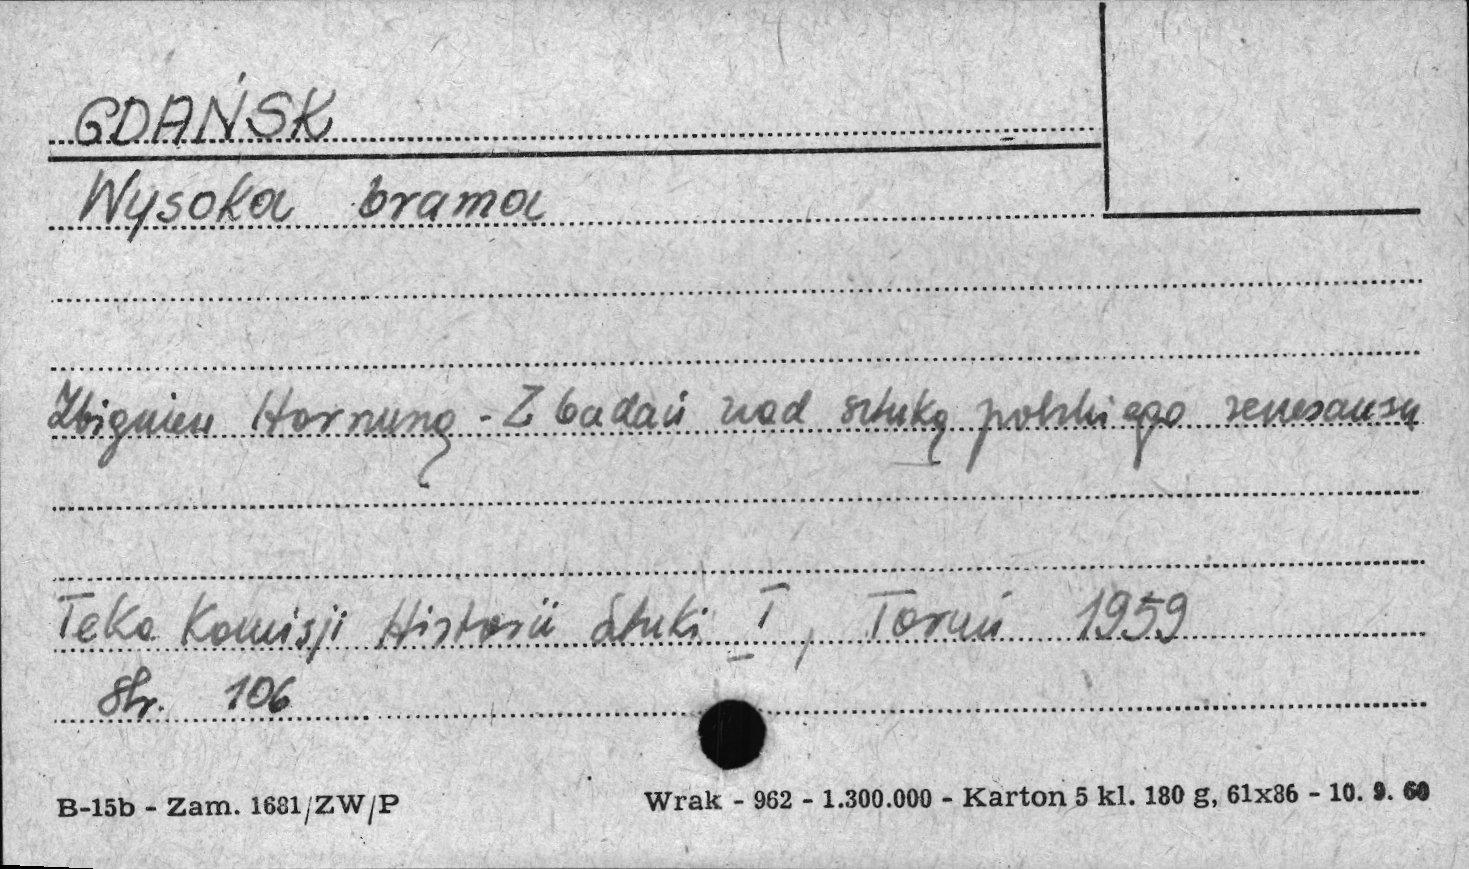 GDAŃSK
Wysoka brama
Zbigniew Hornung - Z badań nad sztuką polskiego renesansu
Teka Komisji Historii Sztuki I, Toruń 1959
str. 106
B-15b - Zam. 1681/ZW/P
Wrak - 962 - 1.300.000 - Karton 5 kl. 180 g, 61x86 - 10. 9. 60